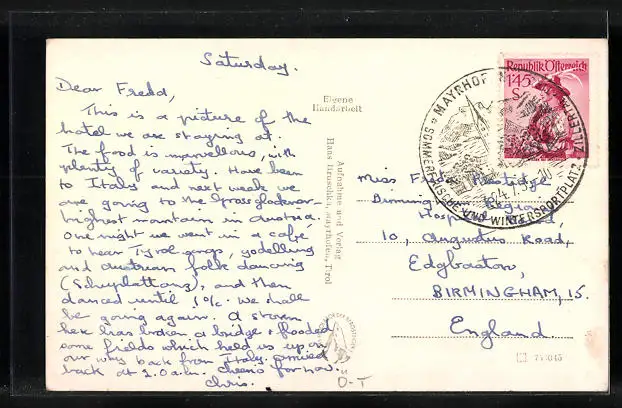 Saturday.
Dear Fredd,
This is a picture of the
hotel we are staying at.
The food is marvellous, with
plenty of variety. Have been
to Italy and next week we
are going to the Grossglockner
highest mountain in Austria.
One night we went in a cafe
to hear Tyrol songs, yodelling
and Austrian folk dancing
(Schuplattang), and then
danced until 1 o/c. We shall
be going again. A storm
here has broken a bridge & flooded
some fields which held us up on
our way back from Italy. arrived
back at 2.0 a.m. Cheerio for now.
Chris.
Eigene
Handarbeit
Aufnahme und Verlag
Hans Hruschka, Mayrhofen, Tirol
Republik Österreich
1'45
S
MAYRHOF
ZILLERTAL
SOMMERFRISCHE UND WINTERSPORTPLATZ
Miss
Birming Region
Hosp
10, Augustus Road,
Edgbaston,
BIRMINGHAM, 15.
England.